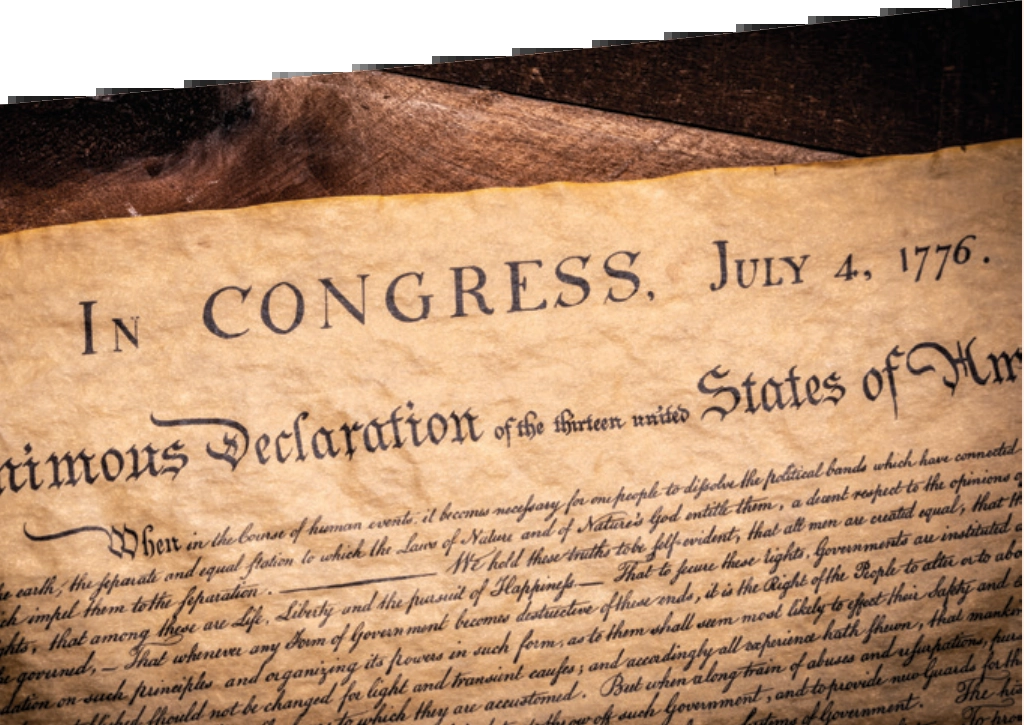 In CONGRESS, July 4, 1776.
nimous Declaration of the thirteen united States of Am
When in the Course of human events, it becomes neceſsary for one people to diſsolve the political bands which have connected
he earth, the ſeparate and equal ſtation to which the Laws of Nature and of Nature's God entitle them, a decent respect to the opinions o
ch impel them to the ſeparation. ——— We hold these truths to be ſelf-evident, that all men are created equal, that th
ghts, that among these are Life, Liberty and the pursuit of Happineſs.— That to secure these rights, Governments are instituted a
e governed, — That whenever any Form of Government becomes destructive of these ends, it is the Right of the People to alter or to abo
dation on such principles, and organizing its powers in such form, as to them shall seem most likely to effect their Safety and
established ſhould not be changed for light and transient cauſes; and accordingly all experience hath ſhewn, that mankin
to which they are accustomed. But when a long train of abuses and uſurpations, purs
to throw off such Government, and to provide new Guards for th
Systems of Government. The his